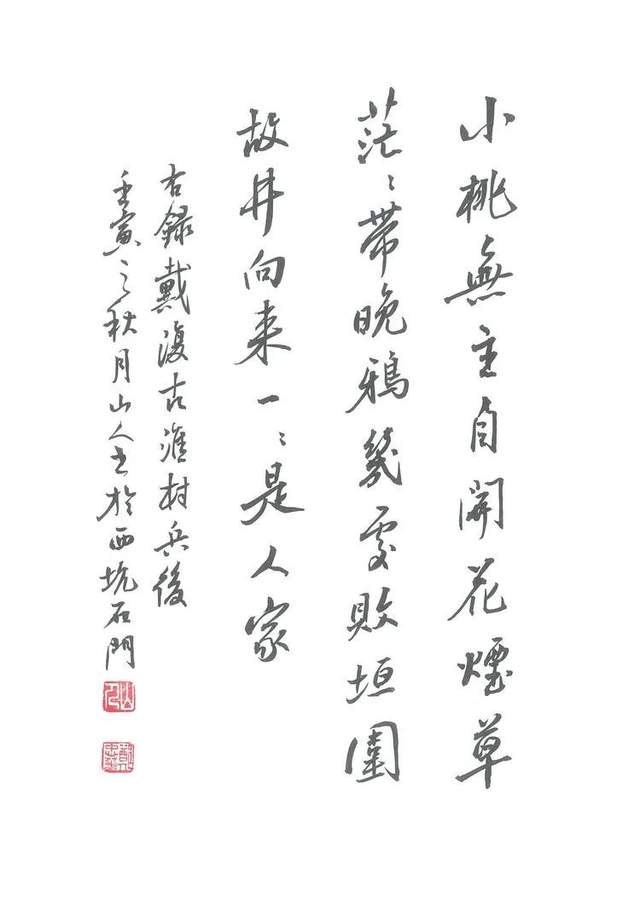 小桃無主自開花煙草
茫〻帶晚鴉幾處敗垣圍
故井向来一〻是人家
右錄戴復古淮村兵後
壬寅之秋月山人書於西坑石門